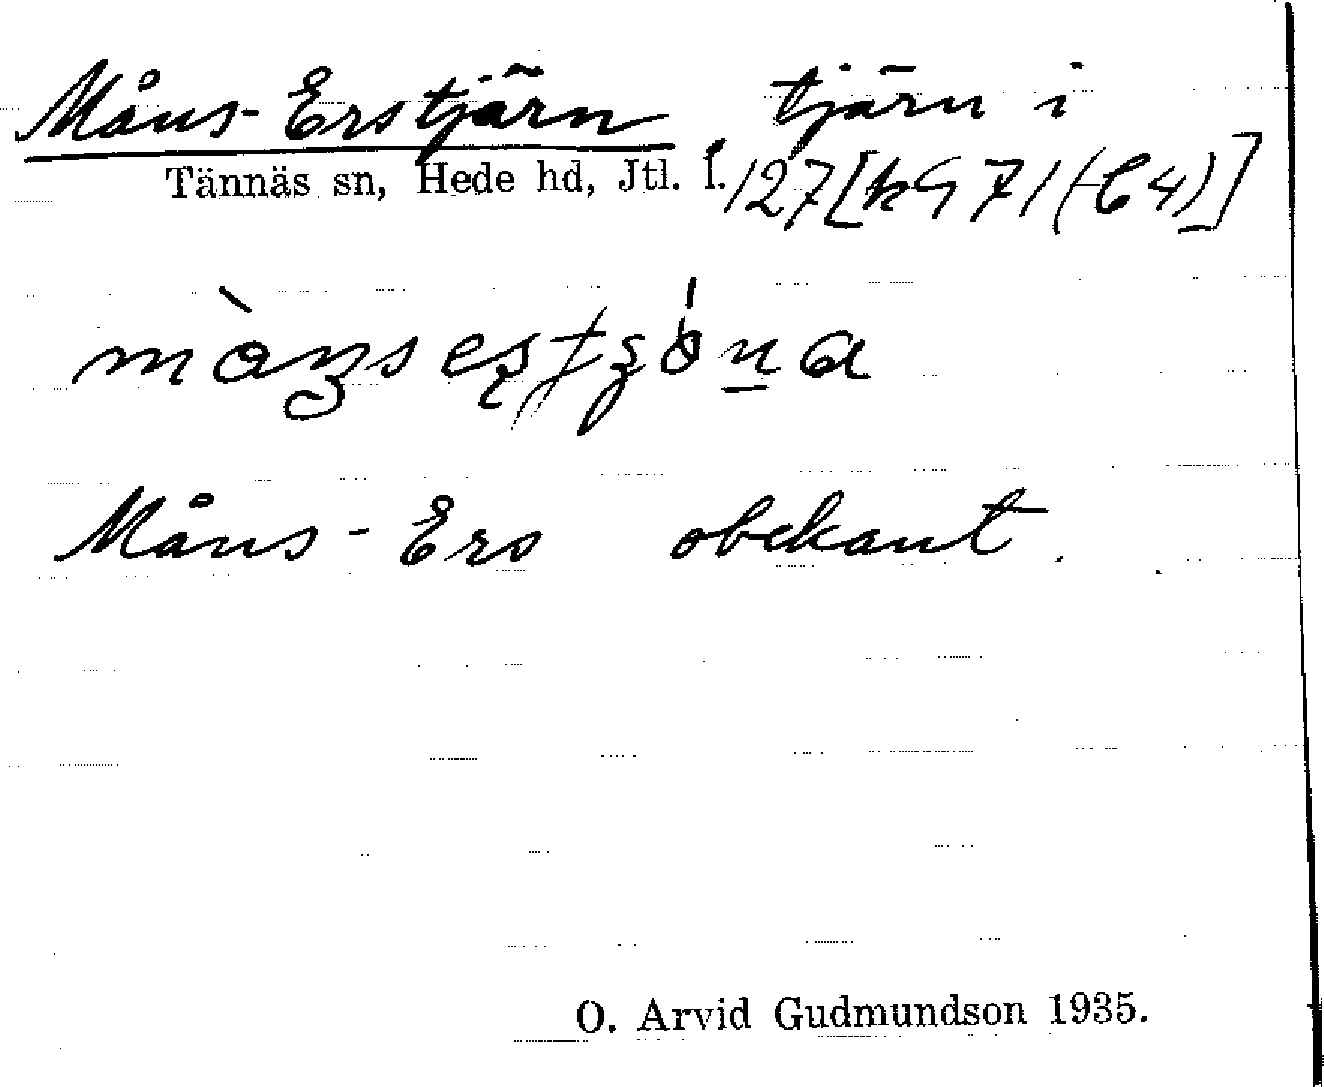 Måns-Erstjärn tjärn i
Tännäs sn, Hede hd, Jtl. l. 127[k971(-64)]
Måns-Ers obekant.
O. Arvid Gudmundson 1935.